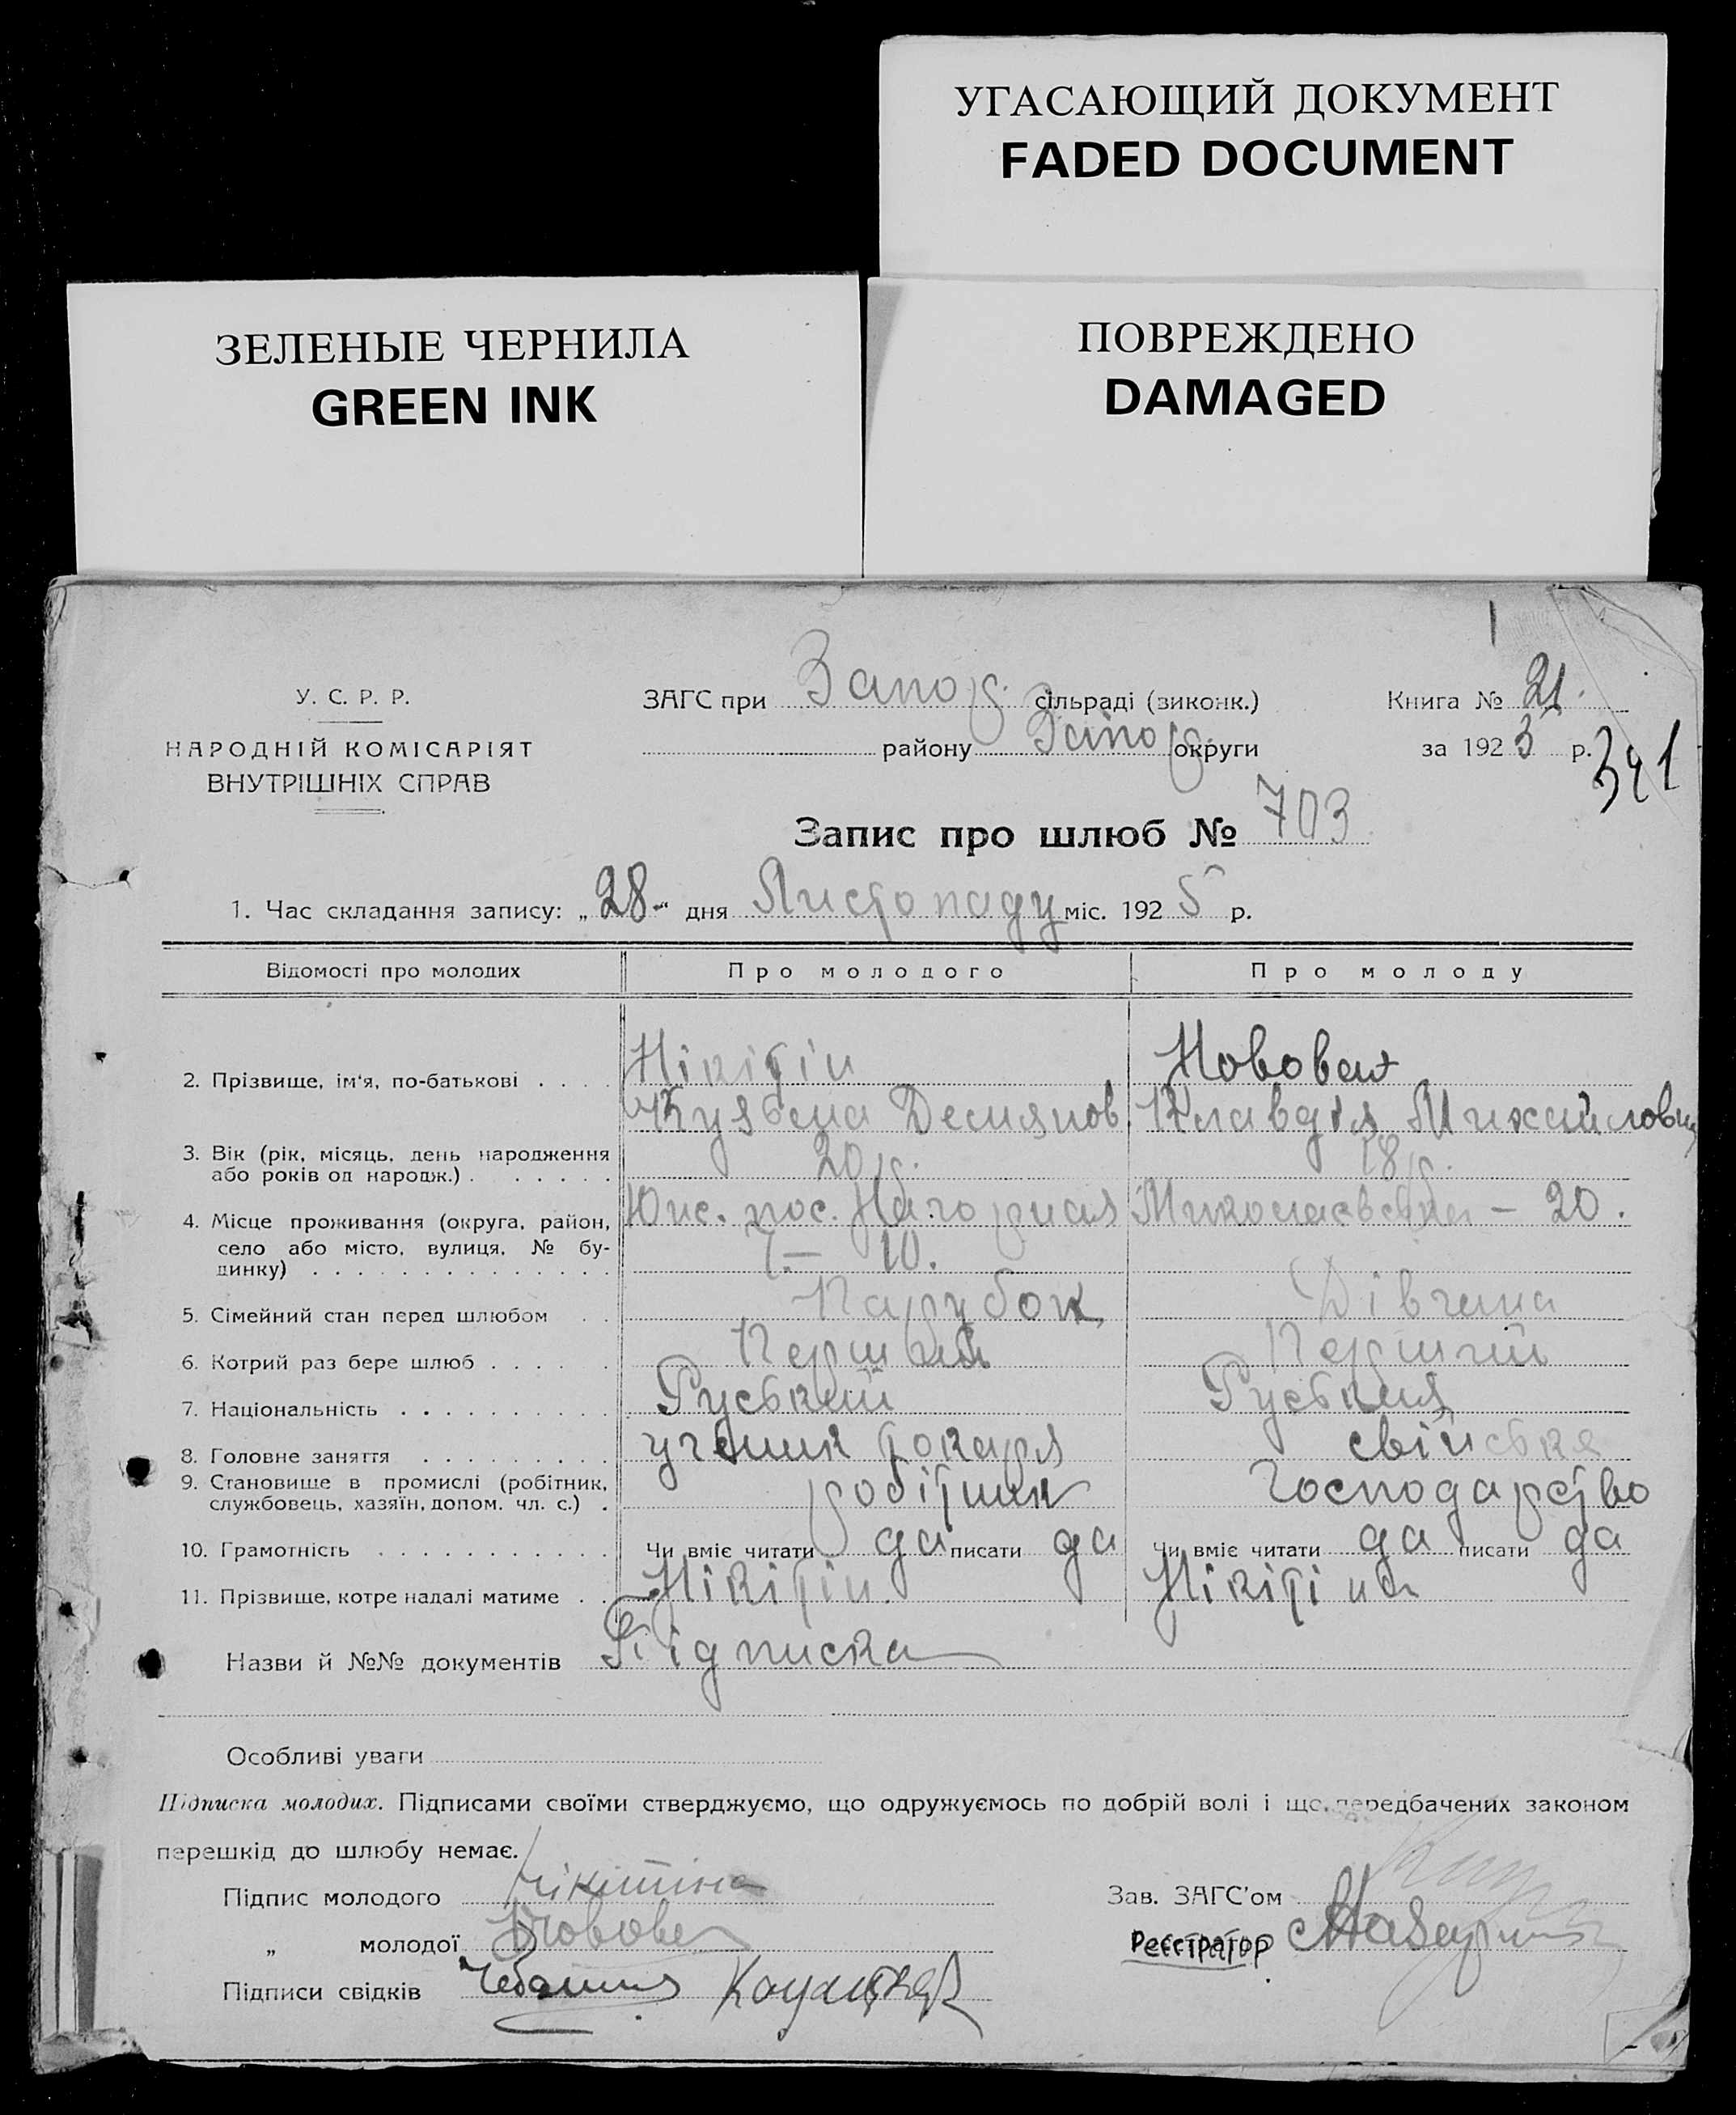 УГАСАЮЩИЙ ДОКУМЕНТ
FADED DOCUMENT
ЗЕЛЕНЫЕ ЧЕРНИЛА
GREEN INK
ПОВРЕЖДЕНО
DAMAGED
У. С. Р. Р.
НАРОДНІЙ КОМІСАРІЯТ
ВНУТРІШНІХ СПРАВ
ЗАГС при Запор. сільраді (виконк.)
району Запор. округи
Книга № 21.
за 1925 р.
341
Запис про шлюб № 703
1. Час складання запису: „28“ дня Листопаду міс. 1925 р.
Відомості про молодих Про молодого Про молоду
2. Прізвище, ім'я, по-батькові Нікітін
Кузьма Демянов. Клавдія Михайловна
3. Вік (рік, місяць, день народження або років од народж.) 20 р. 18 р.
4. Місце проживання (округа, район, село або місто, вулиця, № будинку) Юж. пос. Нагорная 7 – 10. Миколаєвська – 20.
5. Сімейний стан перед шлюбом Парубок Дівчина
6. Котрий раз бере шлюб Перший Перший
7. Національність Руський Руська
8. Головне заняття ученик токаря свійське
9. Становище в промислі (робітник, службовець, хазяїн, допом. чл. с.) робітник господарство
10. Грамотність Чи вміє читати да писати да Чи вміє читати да писати да
11. Прізвище, котре надалі матиме Нікітін. Нікітіна
Назви й №№ документів Підписка
Особливі уваги
Підписка молодих. Підписами своїми стверджуємо, що одружуємось по добрій волі і що передбачених законом
перешкід до шлюбу немає.
Підпис молодого
Зав. ЗАГС'ом
„ молодої
Реєстратор
Підписи свідків